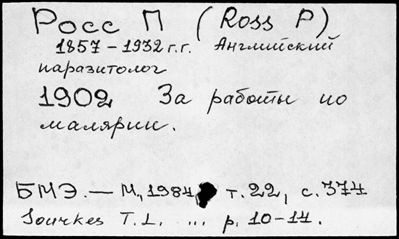 Росс П (Ross P)
1857-1932 г.г. Английский
паразитолог
1902 За работы по
малярии.
БМЭ. - М., 1984, т. 22, с. 374
Sourkes T. L. ... p. 10-14.